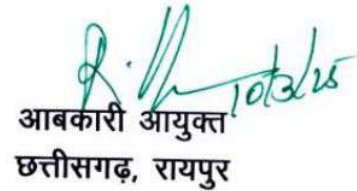 10/3/25
आबकारी आयुक्त
छत्तीसगढ़, रायपुर